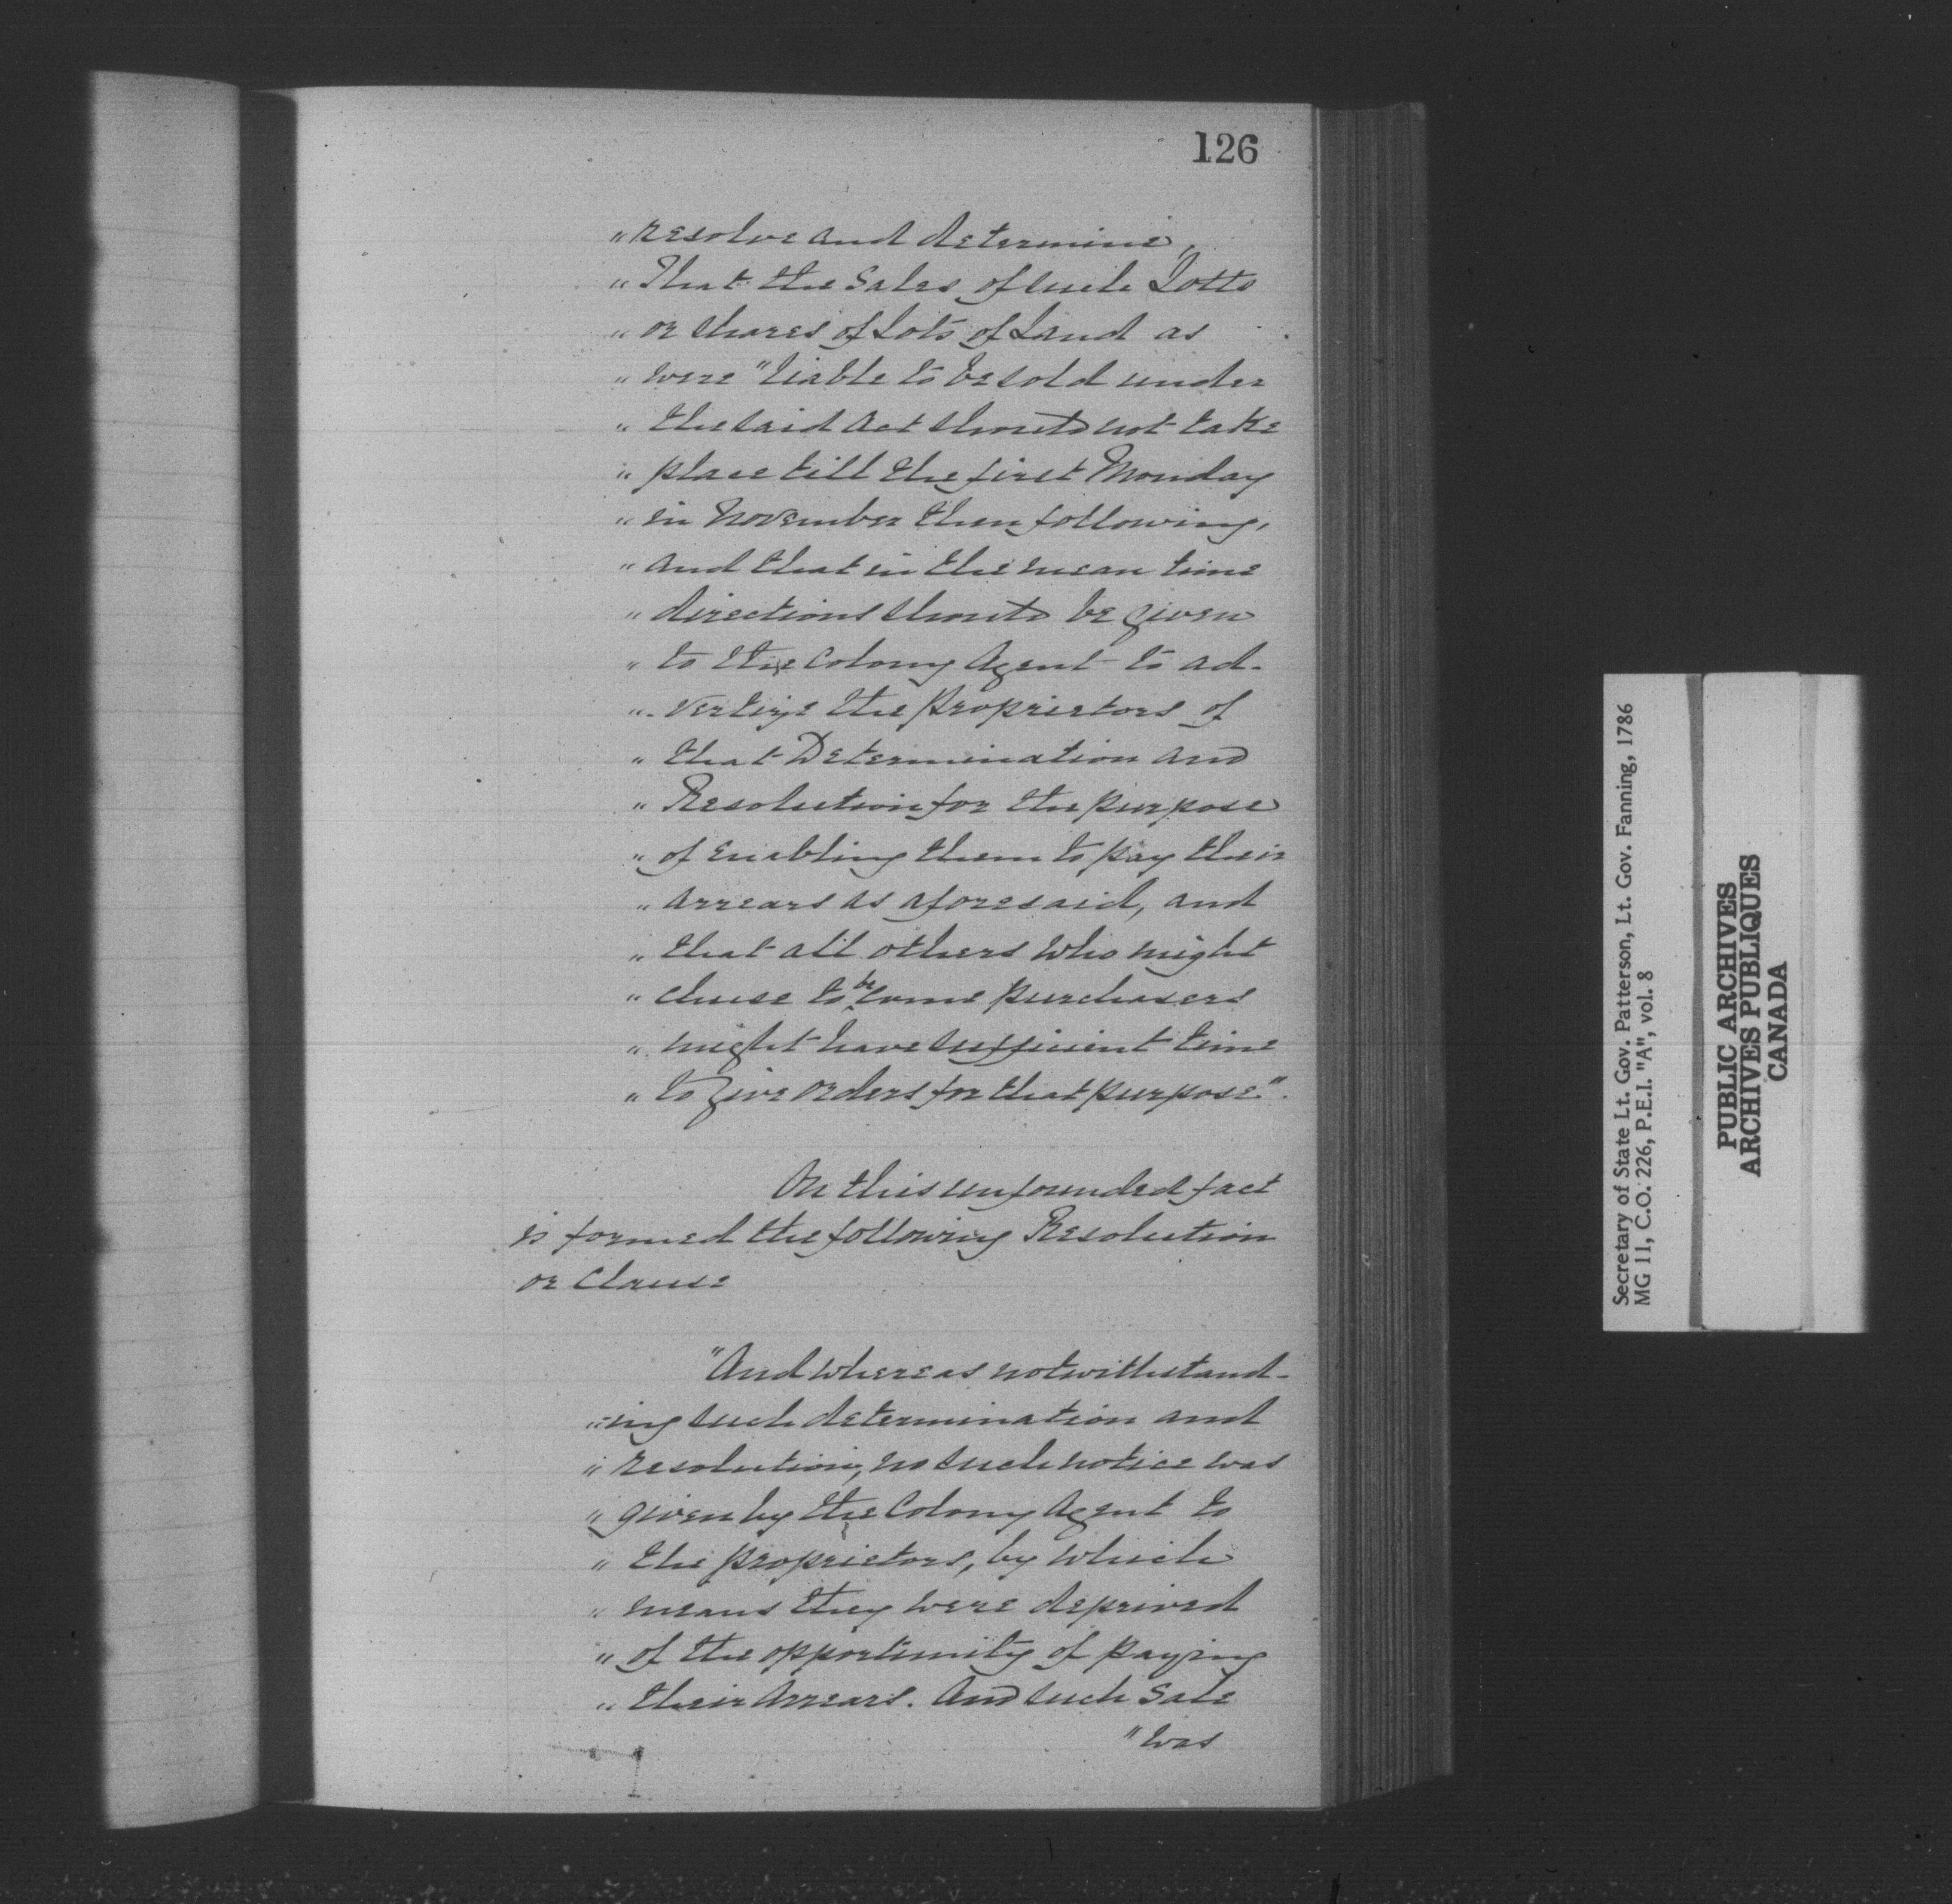 126
" resolve and determine,
" That the Sales of such Lotts
" or shares of Lots of Land as
" were "liable to be sold under
" the said Act should not take
" place till the first Monday
" in November then following,
" and that in the mean time
" directions should be given
" to the Colony Agent to ad-
" -vertize the proprietors of
" that Determination and
" Resolution for the purpose
" of enabling them to pay their
" arrears as aforesaid, and
" that all others who might
" chuse to become purchasers
" might have sufficient time
" to give orders for that purpose."
On this unfounded fact
is formed the following Resolution
or Clause
"And whereas notwithstand-
" -ing such determination and
" resolution, no such notice was
" given by the Colony Agent to
" the proprietors, by which
" means they were deprived
" of the opportunity of paying
" their Arrears. And such Sale
" was
Secretary of State Lt. Gov. Patterson, Lt. Gov. Fanning, 1786
MG 11, C.O. 226, P.E.I. "A", vol. 8
PUBLIC ARCHIVES
ARCHIVES PUBLIQUES
CANADA